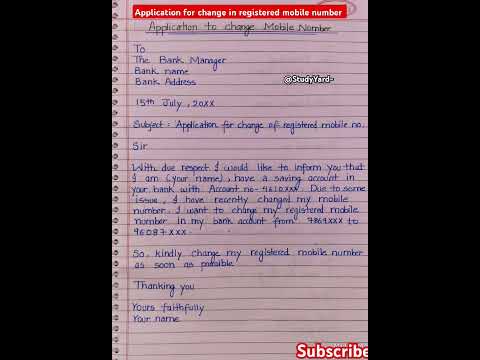 Application for change in registered mobile number
Application to change Mobile Number
To
The Bank Manager
Bank name
Bank Address
@StudyYard-
15th July, 20XX
Subject: Application for change of registered mobile no.
Sir
With due respect I would like to inform you that
I am (your name), have a saving account in
your bank with Account no- 4610XXX. Due to some
issue, I have recently changed my mobile
number. I want to change my registered mobile
number in my bank account from 7869XXX to
96087XXX.
So, kindly change my registered mobile number
as soon as possible
Thanking you
Yours faithfully
Your name
Subscribe